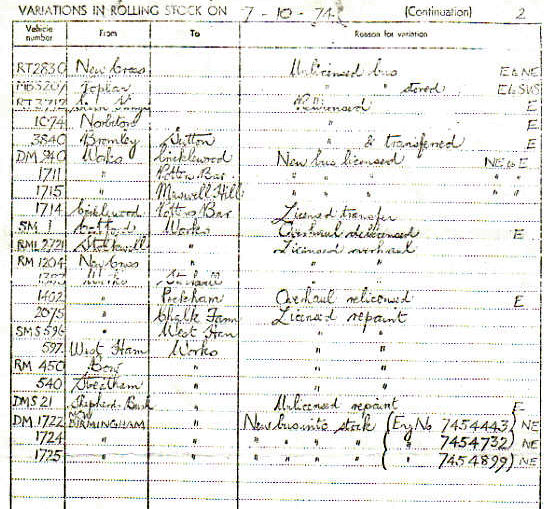 VARIATIONS IN ROLLING STOCK ON 7-10-74. (Continuation) 2
Vehicle number From To Reason for variation
RT2830 New Cross Unlicensed bus E to NE
MB5207 Poplar " " stored E to SWS
RT3712 Relicensed E
1074 Norbiton " E
3840 Bromley Sutton " & transferred E
DM 940 Works Cricklewood New bus licensed NE to E
1711 " Potters Bar " " " "
1715 " Muswell Hill " " " "
1714 Cricklewood Potters Bar Licensed transfer
SM 1 Catford Works Overhaul delicensed E
RML 2721 Stockwell " Licensed overhaul
RM 1204 New Cross " " "
Works " "
1402 " Peckham Overhaul relicensed E
2075 " Chalk Farm Licensed repaint
SMS 596 " West Ham " "
597 West Ham Works " "
RM 450 Bow " " "
540 Streatham " " "
DMS 21 Shepherds Bush " Unlicensed repaint E
DM 1722 MCW BIRMINGHAM " New bus into stock (Eng No 7454443) NE
1724 " " " " " " ( " 7454732) NE
1725 " " " " " " ( " 7454899) NE